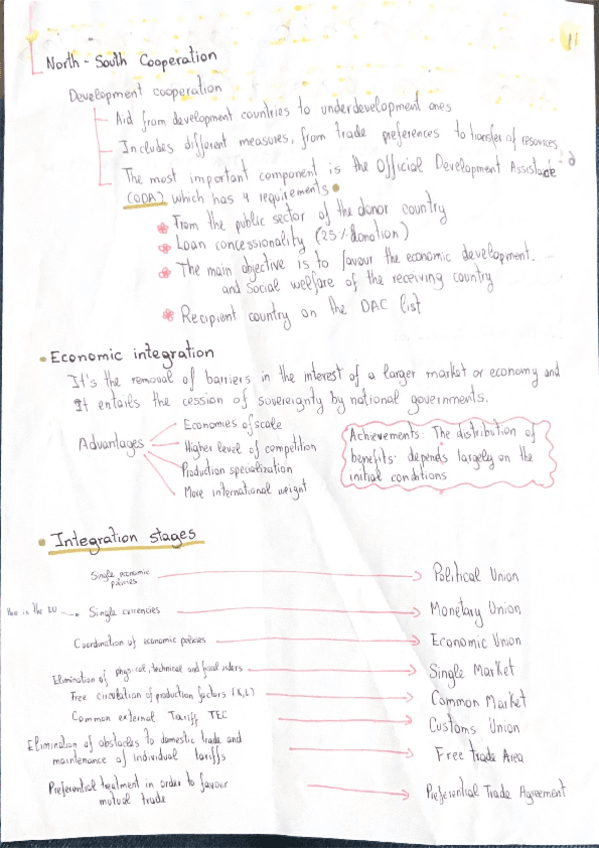 11
North-South Cooperation
Development cooperation
Aid from development countries to underdevelopment ones
Includes different measures, from trade preferences to transfer of resources
The most important component is the Official Development
(ODA) which has 4 requirements
From the public sector of the donor country
Loan concessionality (25% donation)
The main objective is to favour the economic development.
and social welfare of the receiving country
Recipient country on the DAC list
Economic integration
It's the removal of barriers in the interest of a larger market or economy and
It entails the cession of sovereignty by national governments.
Economies of scale
Advantages
Higher level of competition
Production specialization
More international weight
Achievements: The distribution of
benefits depends largely on the
initial conditions
Integration stages
Single economic
policies
Political Union
This is the EU
Single currencies
Monetary Union
Coordination of economic policies
Economic Union
Elimination of physical, technical and
Single Market
Free circulation of production factors (K,L)
Common Market
Common external Tariff TEC
Customs Union
Elimination of obstacles to domestic trade and
maintenance of individual tariffs
Free Trade Area
Preferential treatment in order to favour
mutual trade
Preferential Trade Agreement